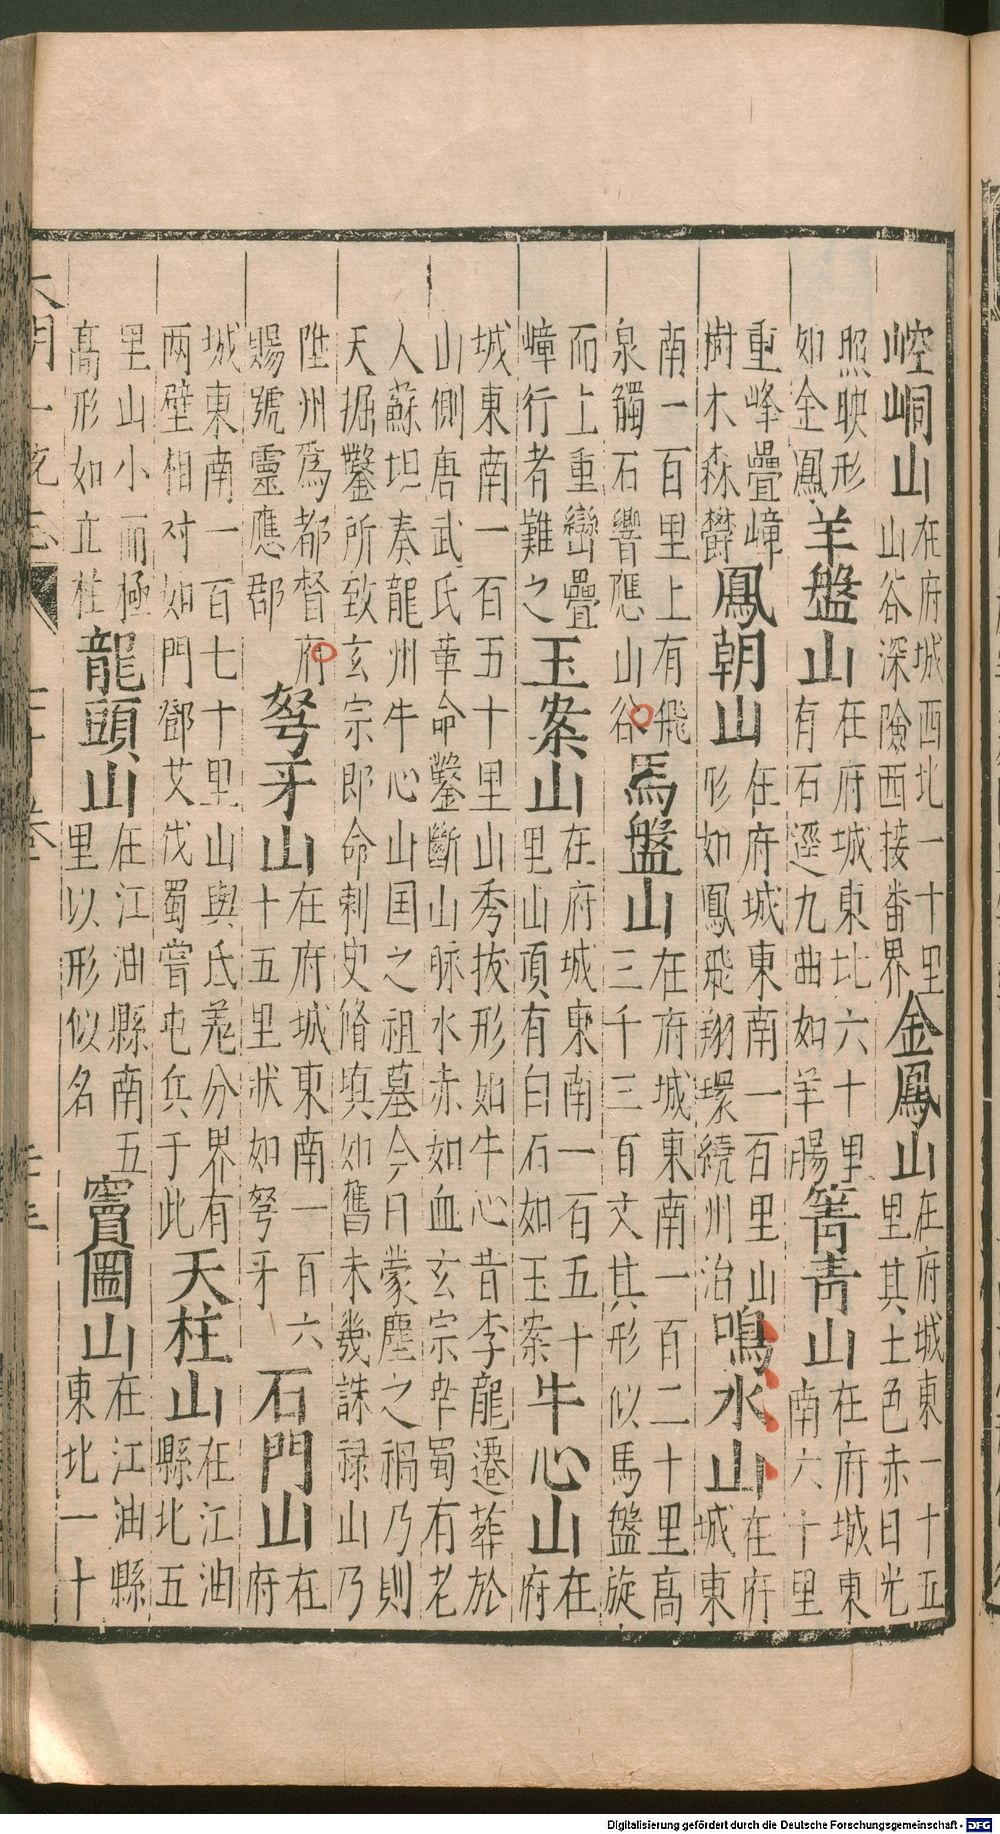 崆峒山在府城西北一十里山谷深險西接畨界金鳳山在府城東一十五里其土色赤日光
照映形如金鳳羊盤山在府城東北六十里有石逕九曲如羊腸箐青山在府城東南六十里
重峰疊嶂樹木森欝鳳朝山在府城東南一百里山形如鳳飛翔環繞州治鳴水山在府城東
南一百里上有飛泉觸石響應山谷馬盤山在府城東南一百二十里高三千三百丈其形似馬盤旋
而上重巒疊嶂行者難之玉案山在府城東南一百五十里山頂有白石如玉案牛心山在府
城東南一百五十里山秀拔形如牛心昔李龍遷葬於山側唐武氏革命鑿斷山脉水赤如血玄宗幸蜀有老
人蘇坦奏龍州牛心山国之祖墓今日蒙塵之禍乃則天掘鑿所致玄宗郎命刺史脩塡如舊未幾誅禄山乃
陞州爲都督府賜號靈應郡弩牙山在府城東南一百六十五里狀如弩牙石門山在府
城東南一百七十里山與氐羌分界有两壁相对如門鄧艾伐蜀嘗屯兵于此天柱山在江油縣北五
里山小而極高形如立柱龍頭山在江油縣南五里以形似名竇圌山在江油縣東北一十
大明一統志
Digitalisierung gefördert durch die Deutsche Forschungsgemeinschaft - DFG